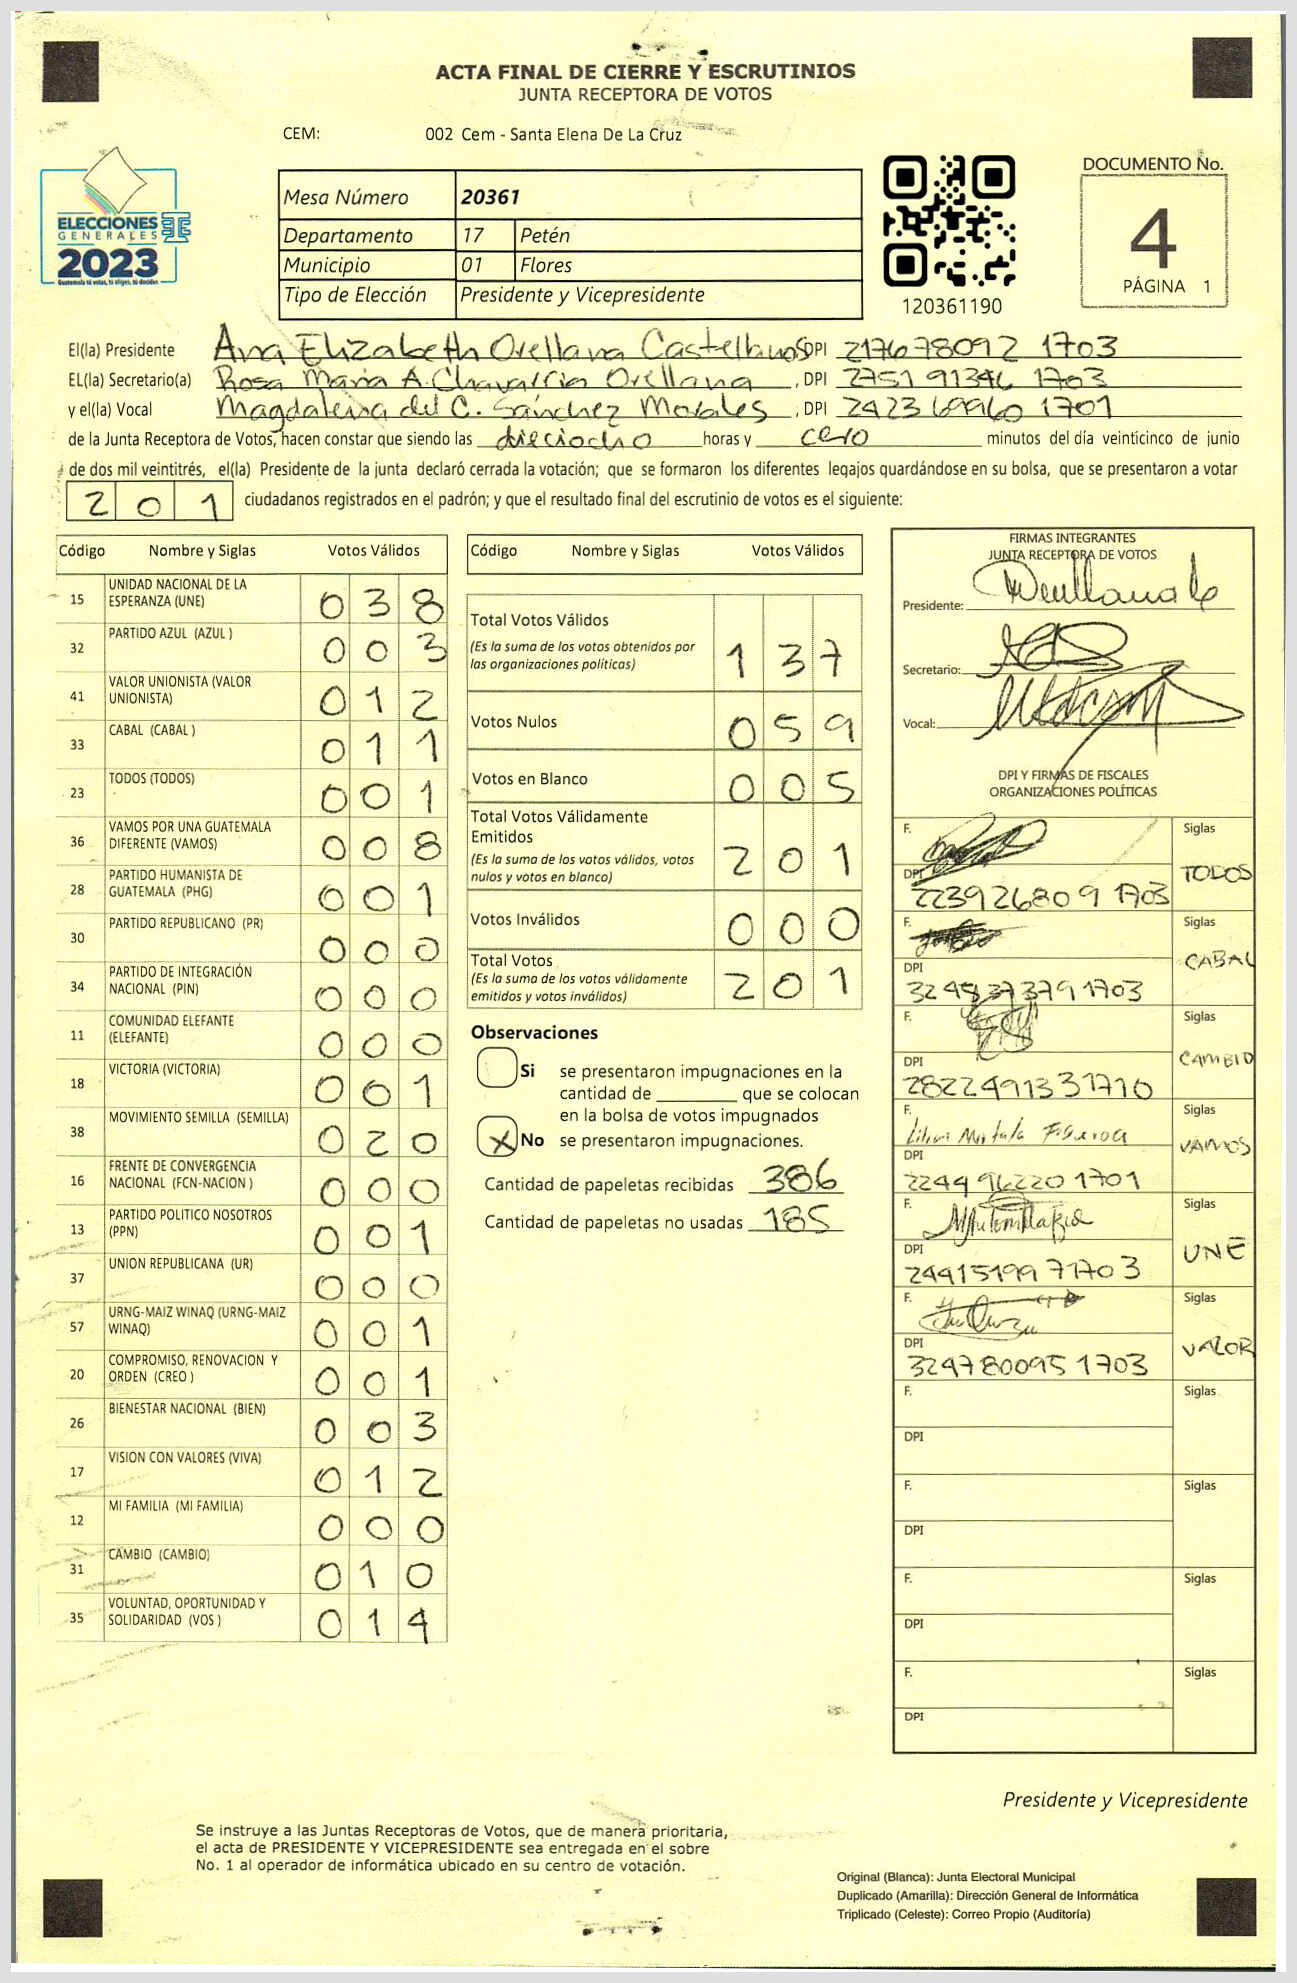 ACTA FINAL DE CIERRE Y ESCRUTINIOS
JUNTA RECEPTORA DE VOTOS
CEM: 002 Cem - Santa Elena De La Cruz
ELECCIONES
GENERALES
2023
Guatemala tú votas, tú eliges, tú decides
Mesa Número 20361
Departamento 17 Petén
Municipio 01 Flores
Tipo de Elección Presidente y Vicepresidente
120361190
DOCUMENTO No.
4
PÁGINA 1
El(la) Presidente Ana Elizabeth Orellana Castellanos DPI 217678092 1703
EL(la) Secretario(a) Rosa Maria A. Chavarria Orellana , DPI 2751 91346 1703
y el(la) Vocal Magdalena del C. Sánchez Morales , DPI 2423 69960 1701
de la Junta Receptora de Votos, hacen constar que siendo las dieciocho horas y cero minutos del día veinticinco de junio
de dos mil veintitrés, el(la) Presidente de la junta declaró cerrada la votación; que se formaron los diferentes legajos quardándose en su bolsa, que se presentaron a votar
201 ciudadanos registrados en el padrón; y que el resultado final del escrutinio de votos es el siguiente:
Código Nombre y Siglas Votos Válidos
15 UNIDAD NACIONAL DE LA ESPERANZA (UNE) 038
32 PARTIDO AZUL (AZUL ) 003
41 VALOR UNIONISTA (VALOR UNIONISTA) 012
33 CABAL (CABAL ) 011
23 TODOS (TODOS) 001
36 VAMOS POR UNA GUATEMALA DIFERENTE (VAMOS) 008
28 PARTIDO HUMANISTA DE GUATEMALA (PHG) 001
30 PARTIDO REPUBLICANO (PR) 000
34 PARTIDO DE INTEGRACIÓN NACIONAL (PIN) 000
11 COMUNIDAD ELEFANTE (ELEFANTE) 000
18 VICTORIA (VICTORIA) 001
38 MOVIMIENTO SEMILLA (SEMILLA) 020
16 FRENTE DE CONVERGENCIA NACIONAL (FCN-NACION ) 000
13 PARTIDO POLITICO NOSOTROS (PPN) 001
37 UNION REPUBLICANA (UR) 000
57 URNG-MAIZ WINAQ (URNG-MAIZ WINAQ) 001
20 COMPROMISO, RENOVACION Y ORDEN (CREO ) 001
26 BIENESTAR NACIONAL (BIEN) 003
17 VISION CON VALORES (VIVA) 012
12 MI FAMILIA (MI FAMILIA) 000
31 CAMBIO (CAMBIO) 010
35 VOLUNTAD, OPORTUNIDAD Y SOLIDARIDAD (VOS ) 014
Código Nombre y Siglas Votos Válidos
Total Votos Válidos
(Es la suma de los votos obtenidos por
las organizaciones políticas) 137
Votos Nulos 059
Votos en Blanco 005
Total Votos Válidamente
Emitidos
(Es la suma de los votos válidos, votos
nulos y votos en blanco) 201
Votos Inválidos 000
Total Votos
(Es la suma de los votos válidamente
emitidos y votos inválidos) 201
Observaciones
Si se presentaron impugnaciones en la
cantidad de ________ que se colocan
en la bolsa de votos impugnados
X No se presentaron impugnaciones.
Cantidad de papeletas recibidas 386
Cantidad de papeletas no usadas 185
FIRMAS INTEGRANTES
JUNTA RECEPTORA DE VOTOS
Presidente:
Secretario:
Vocal:
DPI Y FIRMAS DE FISCALES
ORGANIZACIONES POLÍTICAS
F. Siglas
DPI TODOS
2239 26809 1703
F. Siglas
DPI CABAL
3248 37379 1703
F. Siglas
DPI CAMBIO
2822491331710
F. Siglas
DPI VAMOS
2244 96220 1701
F. Siglas
DPI UNE
24415199 71703
F. Siglas
DPI VALOR
324780095 1703
F. Siglas
DPI
F. Siglas
DPI
F. Siglas
DPI
F. Siglas
DPI
Presidente y Vicepresidente
Se instruye a las Juntas Receptoras de Votos, que de manera prioritaria,
el acta de PRESIDENTE Y VICEPRESIDENTE sea entregada en el sobre
No. 1 al operador de informática ubicado en su centro de votación.
Original (Blanca): Junta Electoral Municipal
Duplicado (Amarilla): Dirección General de Informática
Triplicado (Celeste): Correo Propio (Auditoría)